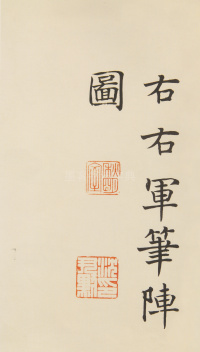 右右軍筆陣
圖